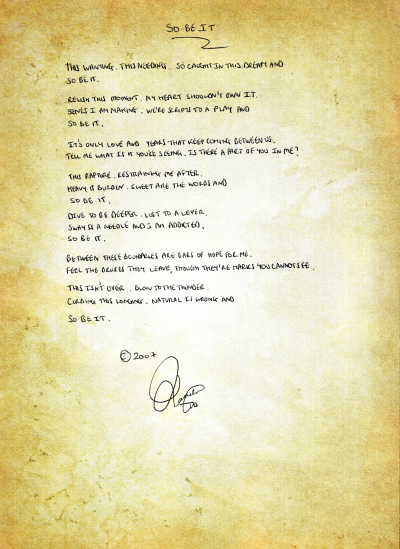 SO BE IT
THIS WANTING. THIS NEEDING. SO CAUGHT IN THIS DREAM AND
SO BE IT.
RELISH THIS MOMENT. MY HEART SHOULDN'T OWN IT.
I AM MAKING. WE'RE SCRIPTS TO A PLAY AND
SO BE IT.
IT'S ONLY LOVE AND YEARS THAT KEEP COMING BETWEEN US.
TELL ME WHAT IS IT YOU'RE SEEING. IS THERE A PART OF YOU IN ME?
THIS RAPTURE. RESTRAINING ME AFTER.
HEAVY IS BURDEN. SWEET ARE THE WORDS AND
SO BE IT.
DIVE TO BE DEEPER. LUST TO A LOVER.
SWAY IS A NEEDLE AND I AM ADDICTED.
SO BE IT.
BETWEEN THESE BOUNDARIES ARE BARS OF HOPE FOR ME.
FEEL THE BRUISES THEY LEAVE, THOUGH THEY'RE MARKS YOU CANNOT SEE.
THIS ISN'T OVER. BLOW TO THE THUNDER.
CURBING THIS LONGING. NATURAL IS WRONG AND
SO BE IT.
© 2007